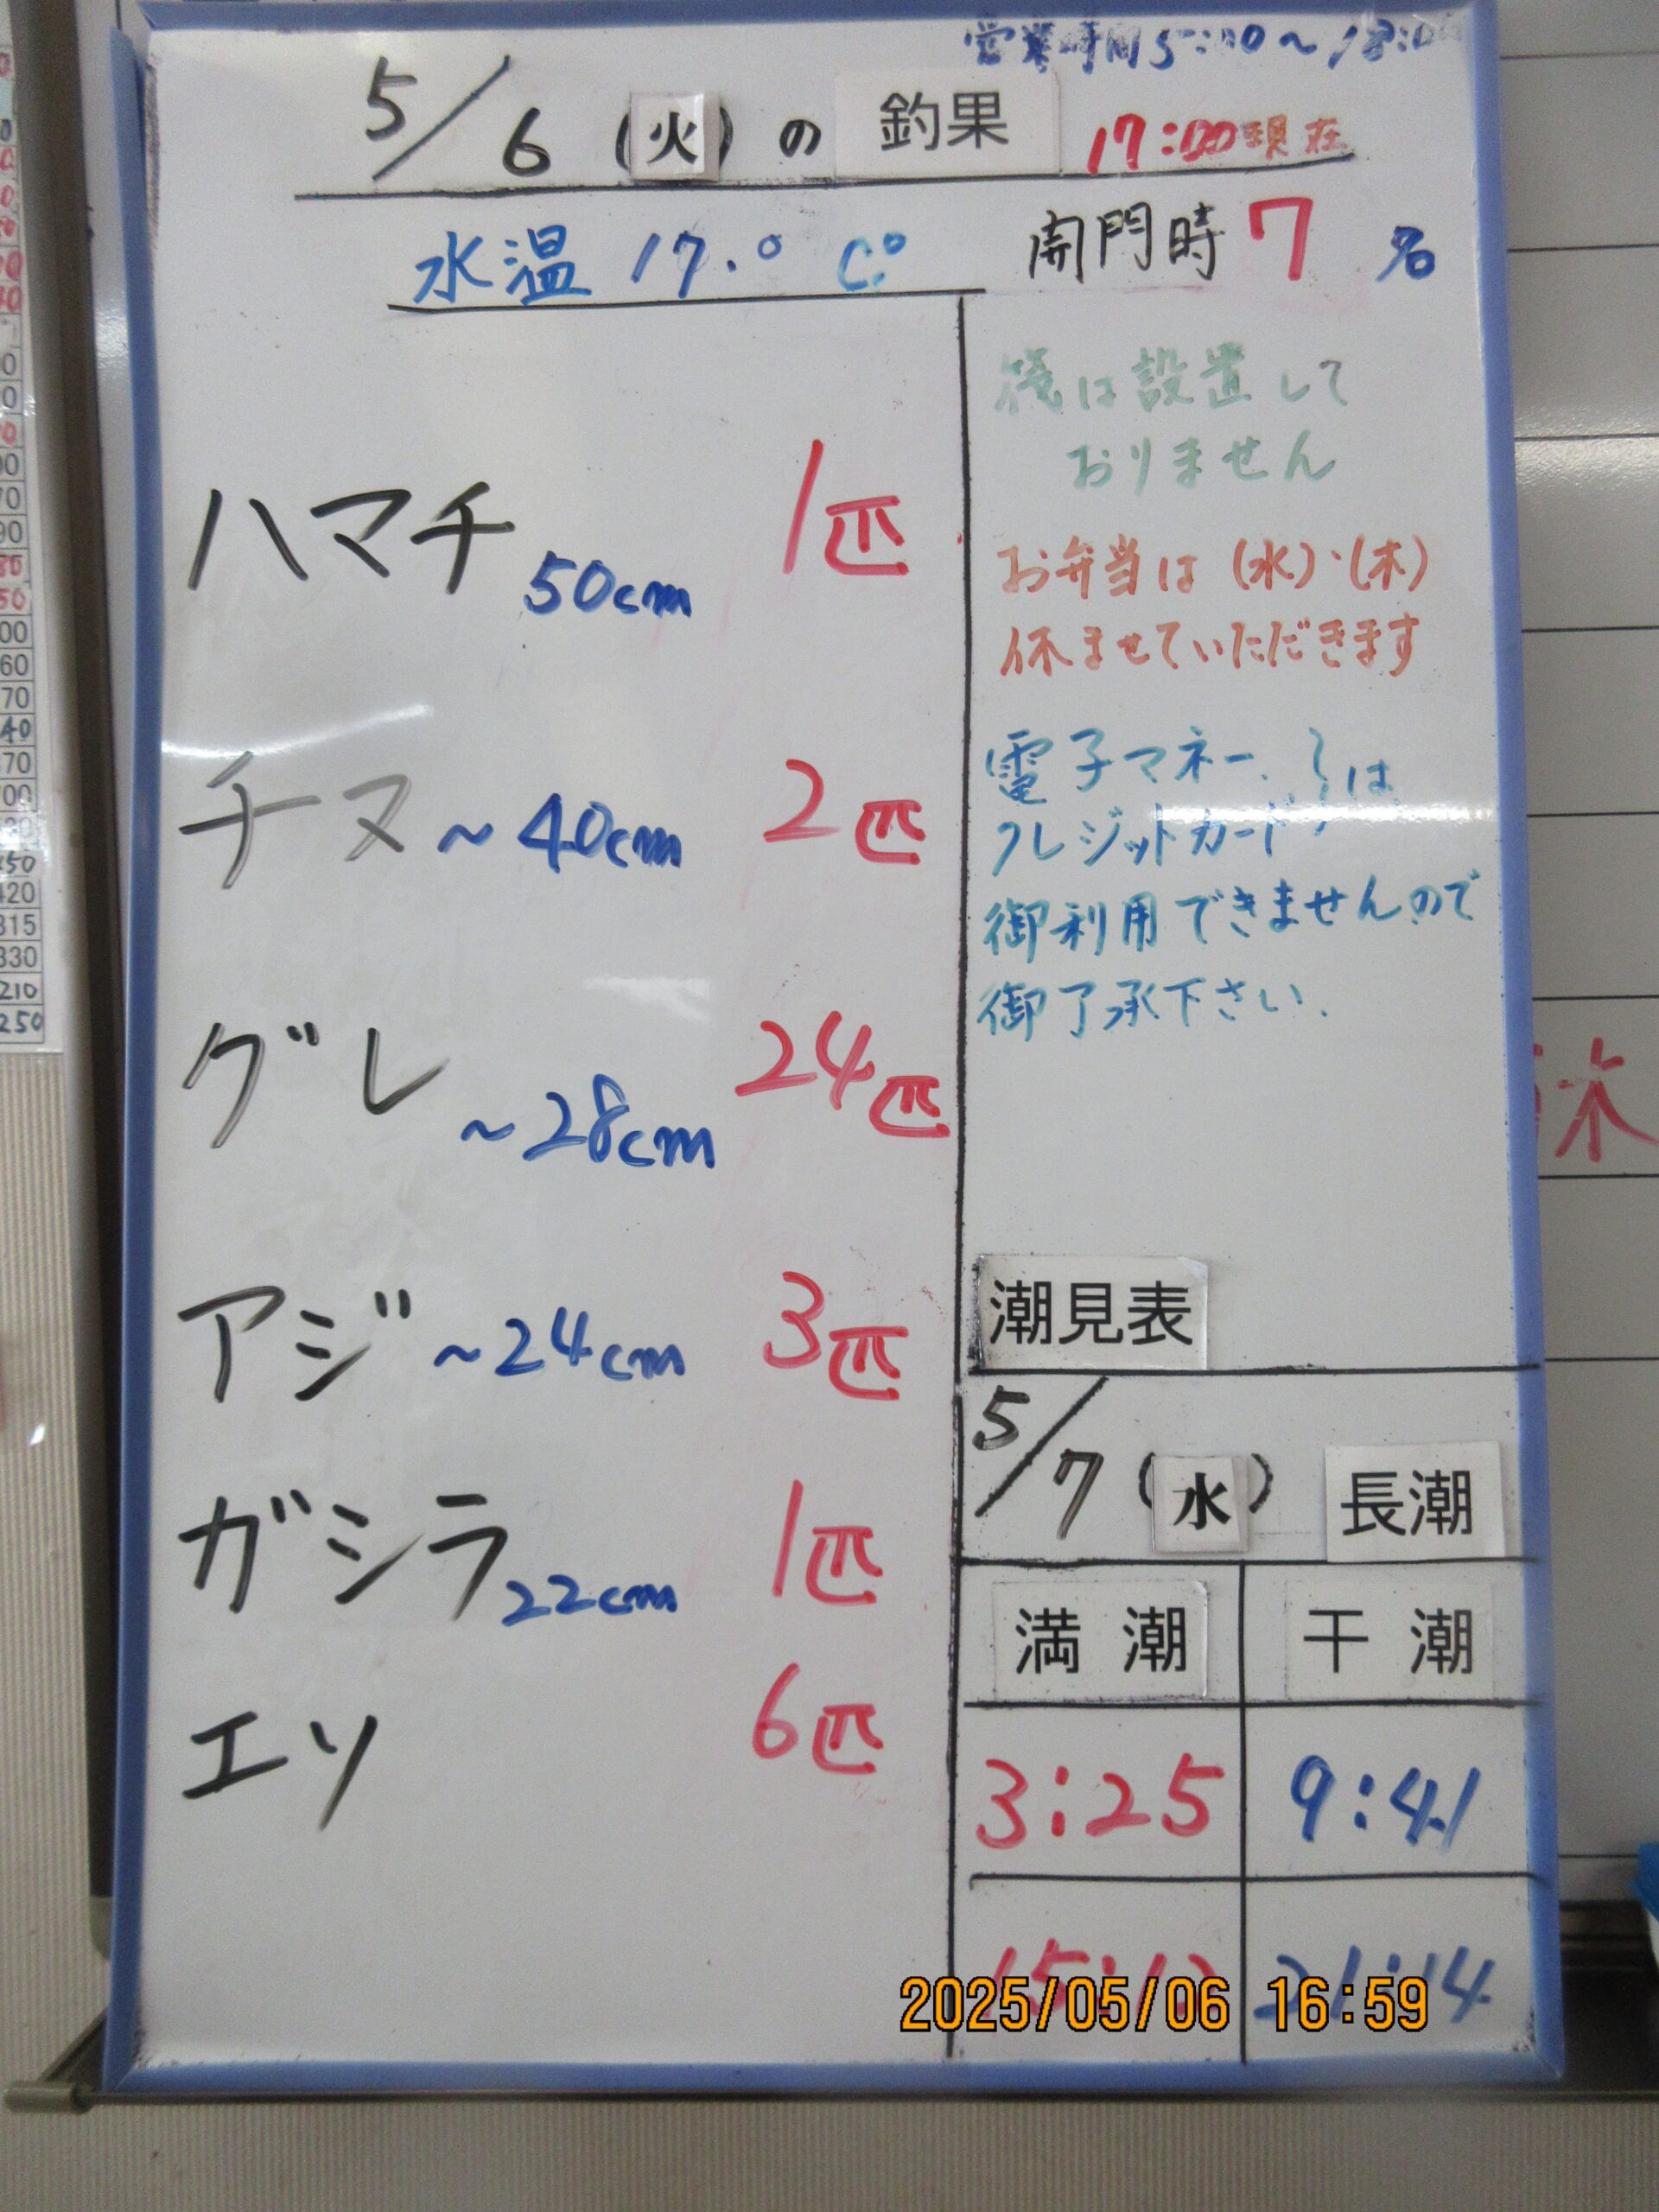 営業時間 5:00～18:00
5/6 (火) の 釣果 17:00現在
水温 17.° C°
開門時 7 名
ハマチ 50cm 1匹
チヌ ～40cm 2匹
グレ ～28cm 24匹
アジ ～24cm 3匹
ガシラ 22cm 1匹
エソ 6匹
筏は設置して
おりません
お弁当は(水)・(木)
休ませていただきます
電子マネー、
クレジットカード は
御利用できませんので
御了承下さい.
潮見表
5/7 (水) 長潮
満潮 干潮
3:25 9:41
21:14
2025/05/06 16:59